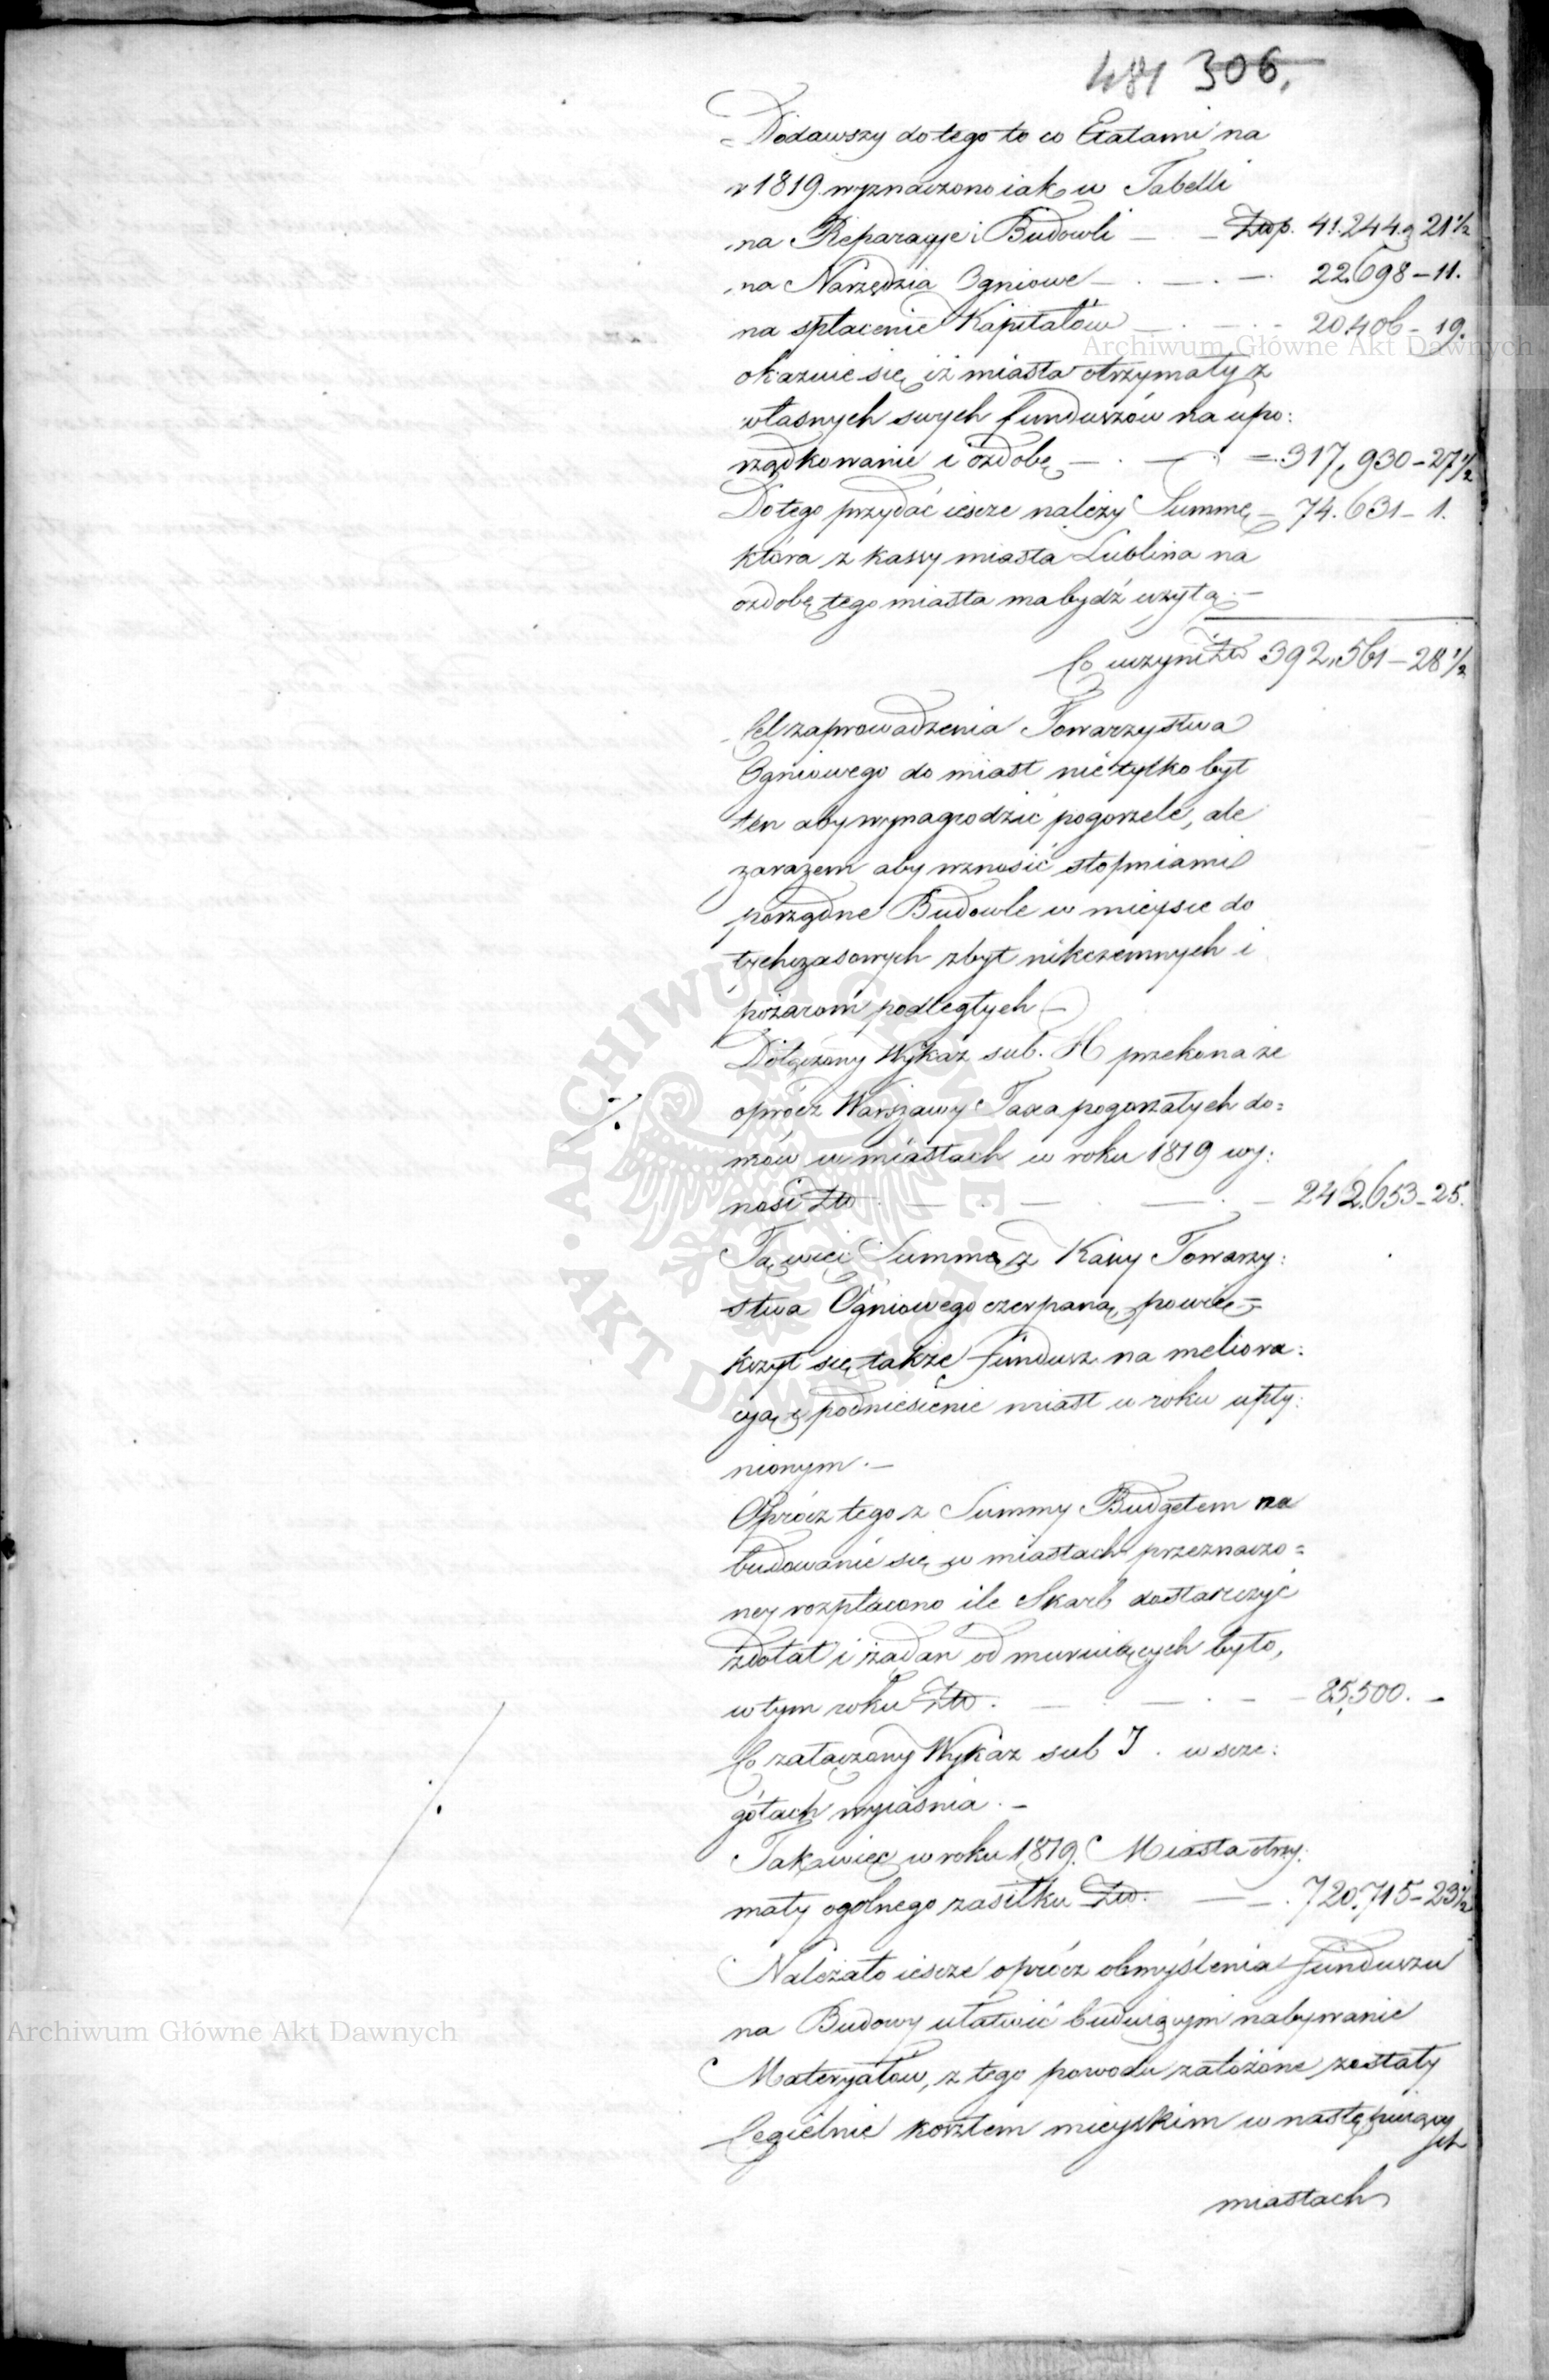 481 306.
Dodawszy do tego to co Etatami na
r 1819 wyznaczono iak w Tabelli
na Reparacye i Budowli — — Złłp. 41.244.g 21½
na Narzędzia Ogniowe — . — . — . 22.698 - 11.
na spłacenie Kapitałów — . — . - 20.406 - 19.
Archiwum Główne Akt Dawnych
okazuie się iż miasta otrzymały z
własnych swych funduszów na upo:
rządkowanie i ozdobę — . — . =. 317,930 - 27½
Do tego przydać ieszcze należy Summę — 74.631 - 1.
która z kassy miasta Lublina na
ozdobę tego miasta ma bydź użytą . —
Co uczyni Złł 392,561 - 28½
Cel zaprowadzenia Towarzystwa
Ogniowego do miast nie tylko był
ten aby wynagrodzić pogorzele, ale
zarazem aby wznosić stopniami
porządne Budowle w mieysce do
tychczasowych zbyt nikczemnych i
pożarom podległych —
Dołączony Wykaz sub. H przekona że
oprócz Warszawy Taxa pogorzałych do=
mów w miastach w roku 1819 wy:
nosi Złł . — . — . — . — 242.653 - 25.
Tą więc Summą z Kassy Towarzy:
stwa Ogniowego czerpaną, powię=
kszył się także fundusz na meliora:
cyą i podniesienie miast w roku upły:
nionym . —
Oprócz tego z Summy Budżetem na
budowanie się w miastach przeznaczo=
ney rozpłacono ile Skarb dostarczyć
zdołał i żądań od muruiących było,
w tym roku Złł . — . — . - - 85,500. -
Co załączony Wykaz sub J . w szcze:
gółach wyiaśnia . —
Tak więc w roku 1819. Miasta otrzy:
mały ogólnego zasiłku Złł. — — . 720.715 - 23½
Należało ieszcze oprócz obmyślenia funduszu
na Budowy ułatwić buduiącym nabywanie
Archiwum Główne Akt Dawnych
Materyałów, z tego powodu założone zostały
Cegielnie kosztem mieyskim w następuiący
ch
miastach
ARCHIWUM GŁÓWNE AKT DAWNYCH